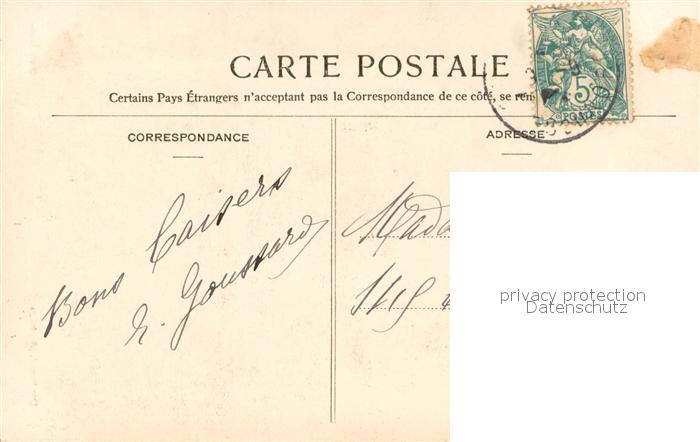 CARTE POSTALE
Certains Pays Étrangers n'acceptant pas la Correspondance de ce côté, se ren
CORRESPONDANCE
ADRESSE
Bons Baisers
E. Goussard
Mada
5
POSTES
privacy protection
Datenschutz